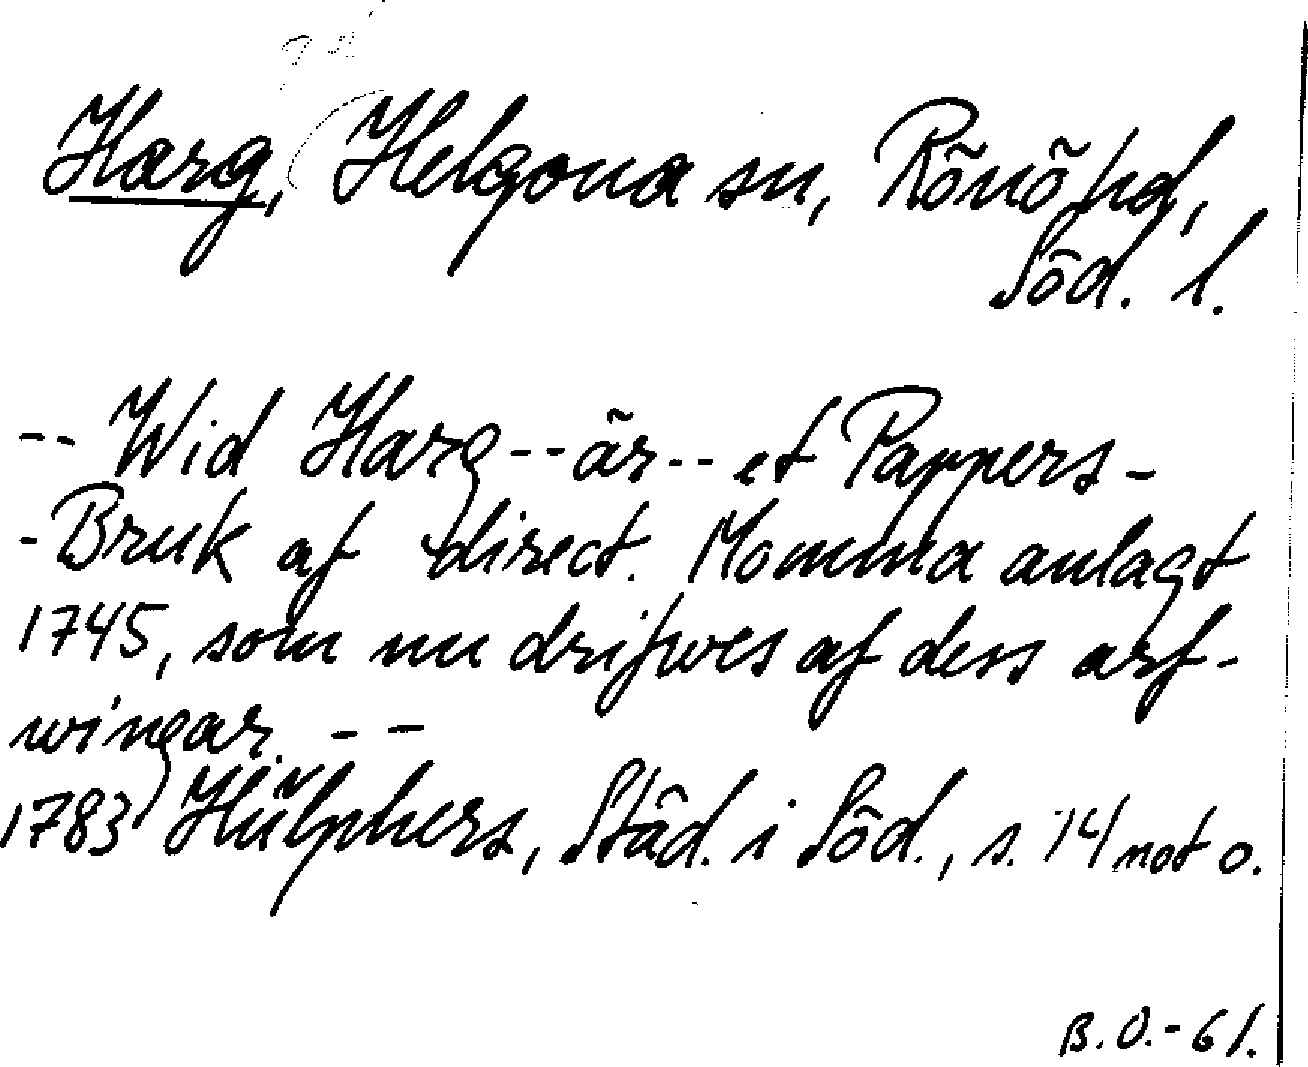 Harg, Helgona sn, Rönö hd,
Söd. l.
-- Wid Harg -- är -- et Pappers-
-Bruk af direct. Momma anlagt
1745, som nu drifwes af dess arf-
wingar. --
1783 Hülphers, Städ. i Söd., s. 74 not o.
B.O.-61.